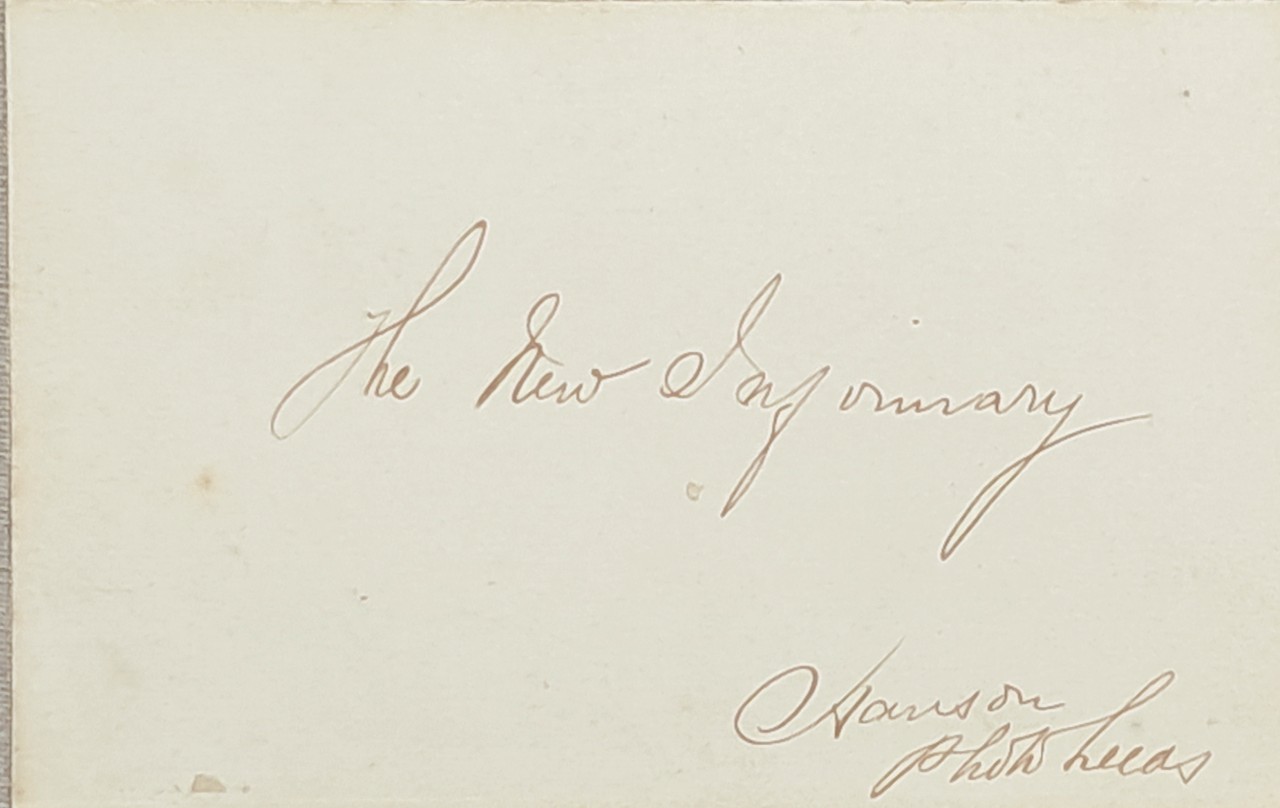 The New Infirmary
Hanson
Photo Leeds